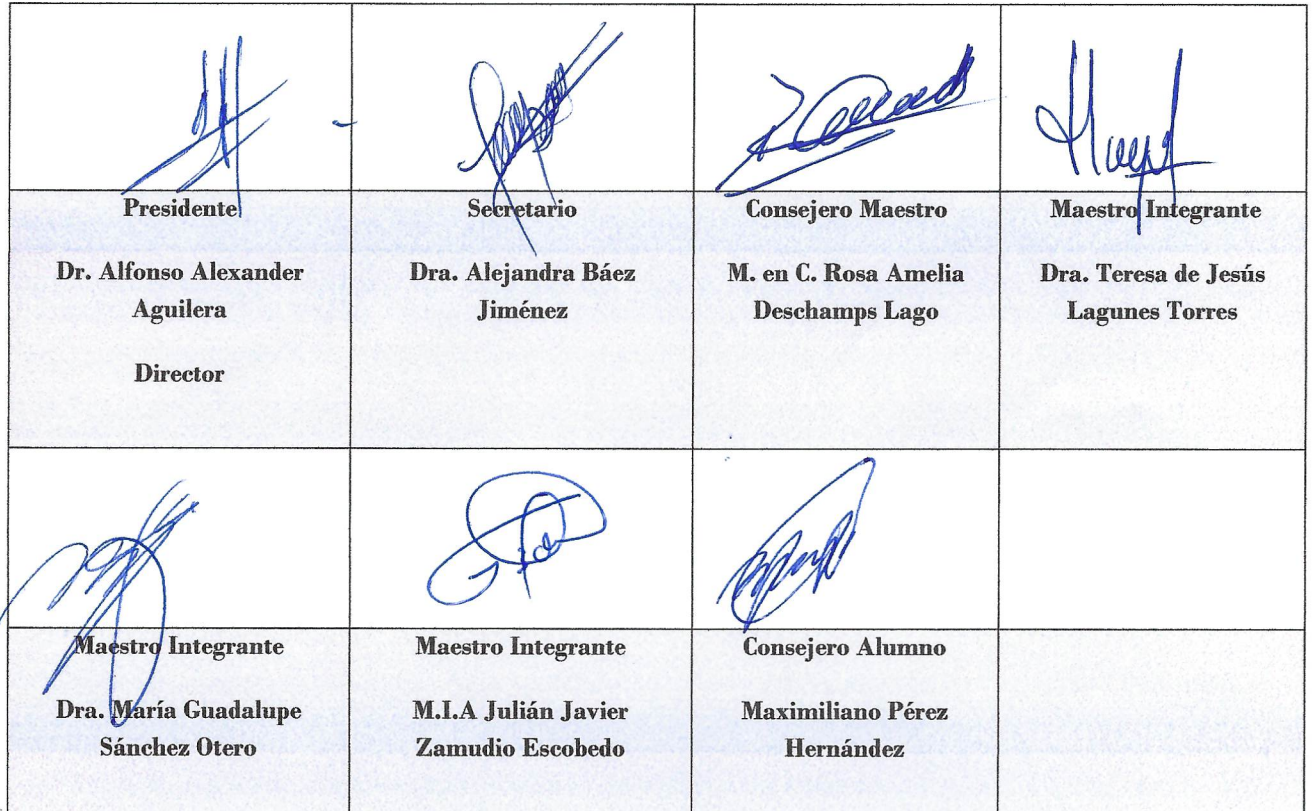 Presidente
Dr. Alfonso Alexander
Aguilera
Director
Secretario
Dra. Alejandra Báez
Jiménez
Consejero Maestro
M. en C. Rosa Amelia
Deschamps Lago
Maestro Integrante
Dra. Teresa de Jesús
Lagunes Torres
Maestro Integrante
Dra. María Guadalupe
Sánchez Otero
Maestro Integrante
M.I.A Julián Javier
Zamudio Escobedo
Consejero Alumno
Maximiliano Pérez
Hernández